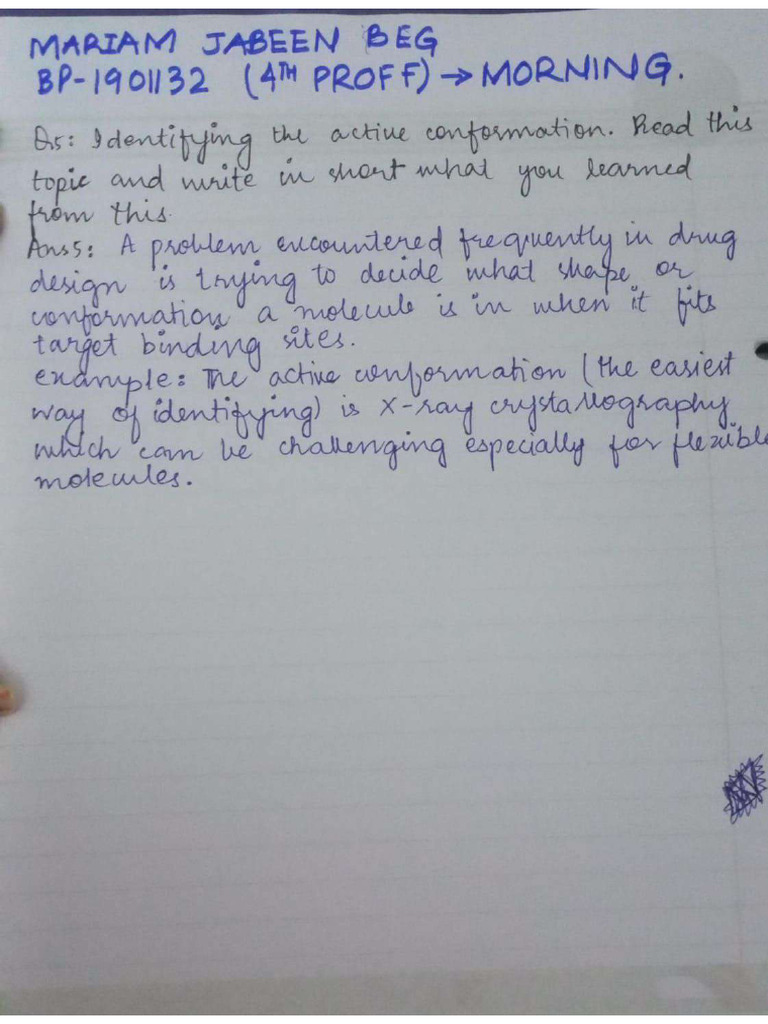 MARIAM JABEEN BEG
BP-1901132 (4TH PROFF) → MORNING.
Q5: Identifying the active conformation. Read this
topic and write in short what you learned
from this.
Ans5: A problem encountered frequently in drug
design is trying to decide what shape or
conformation a molecule is in when it fits
target binding sites.
example: The active conformation (the easiest
way of identifying) is X-ray crystallography
which can be challenging especially for flexible
molecules.